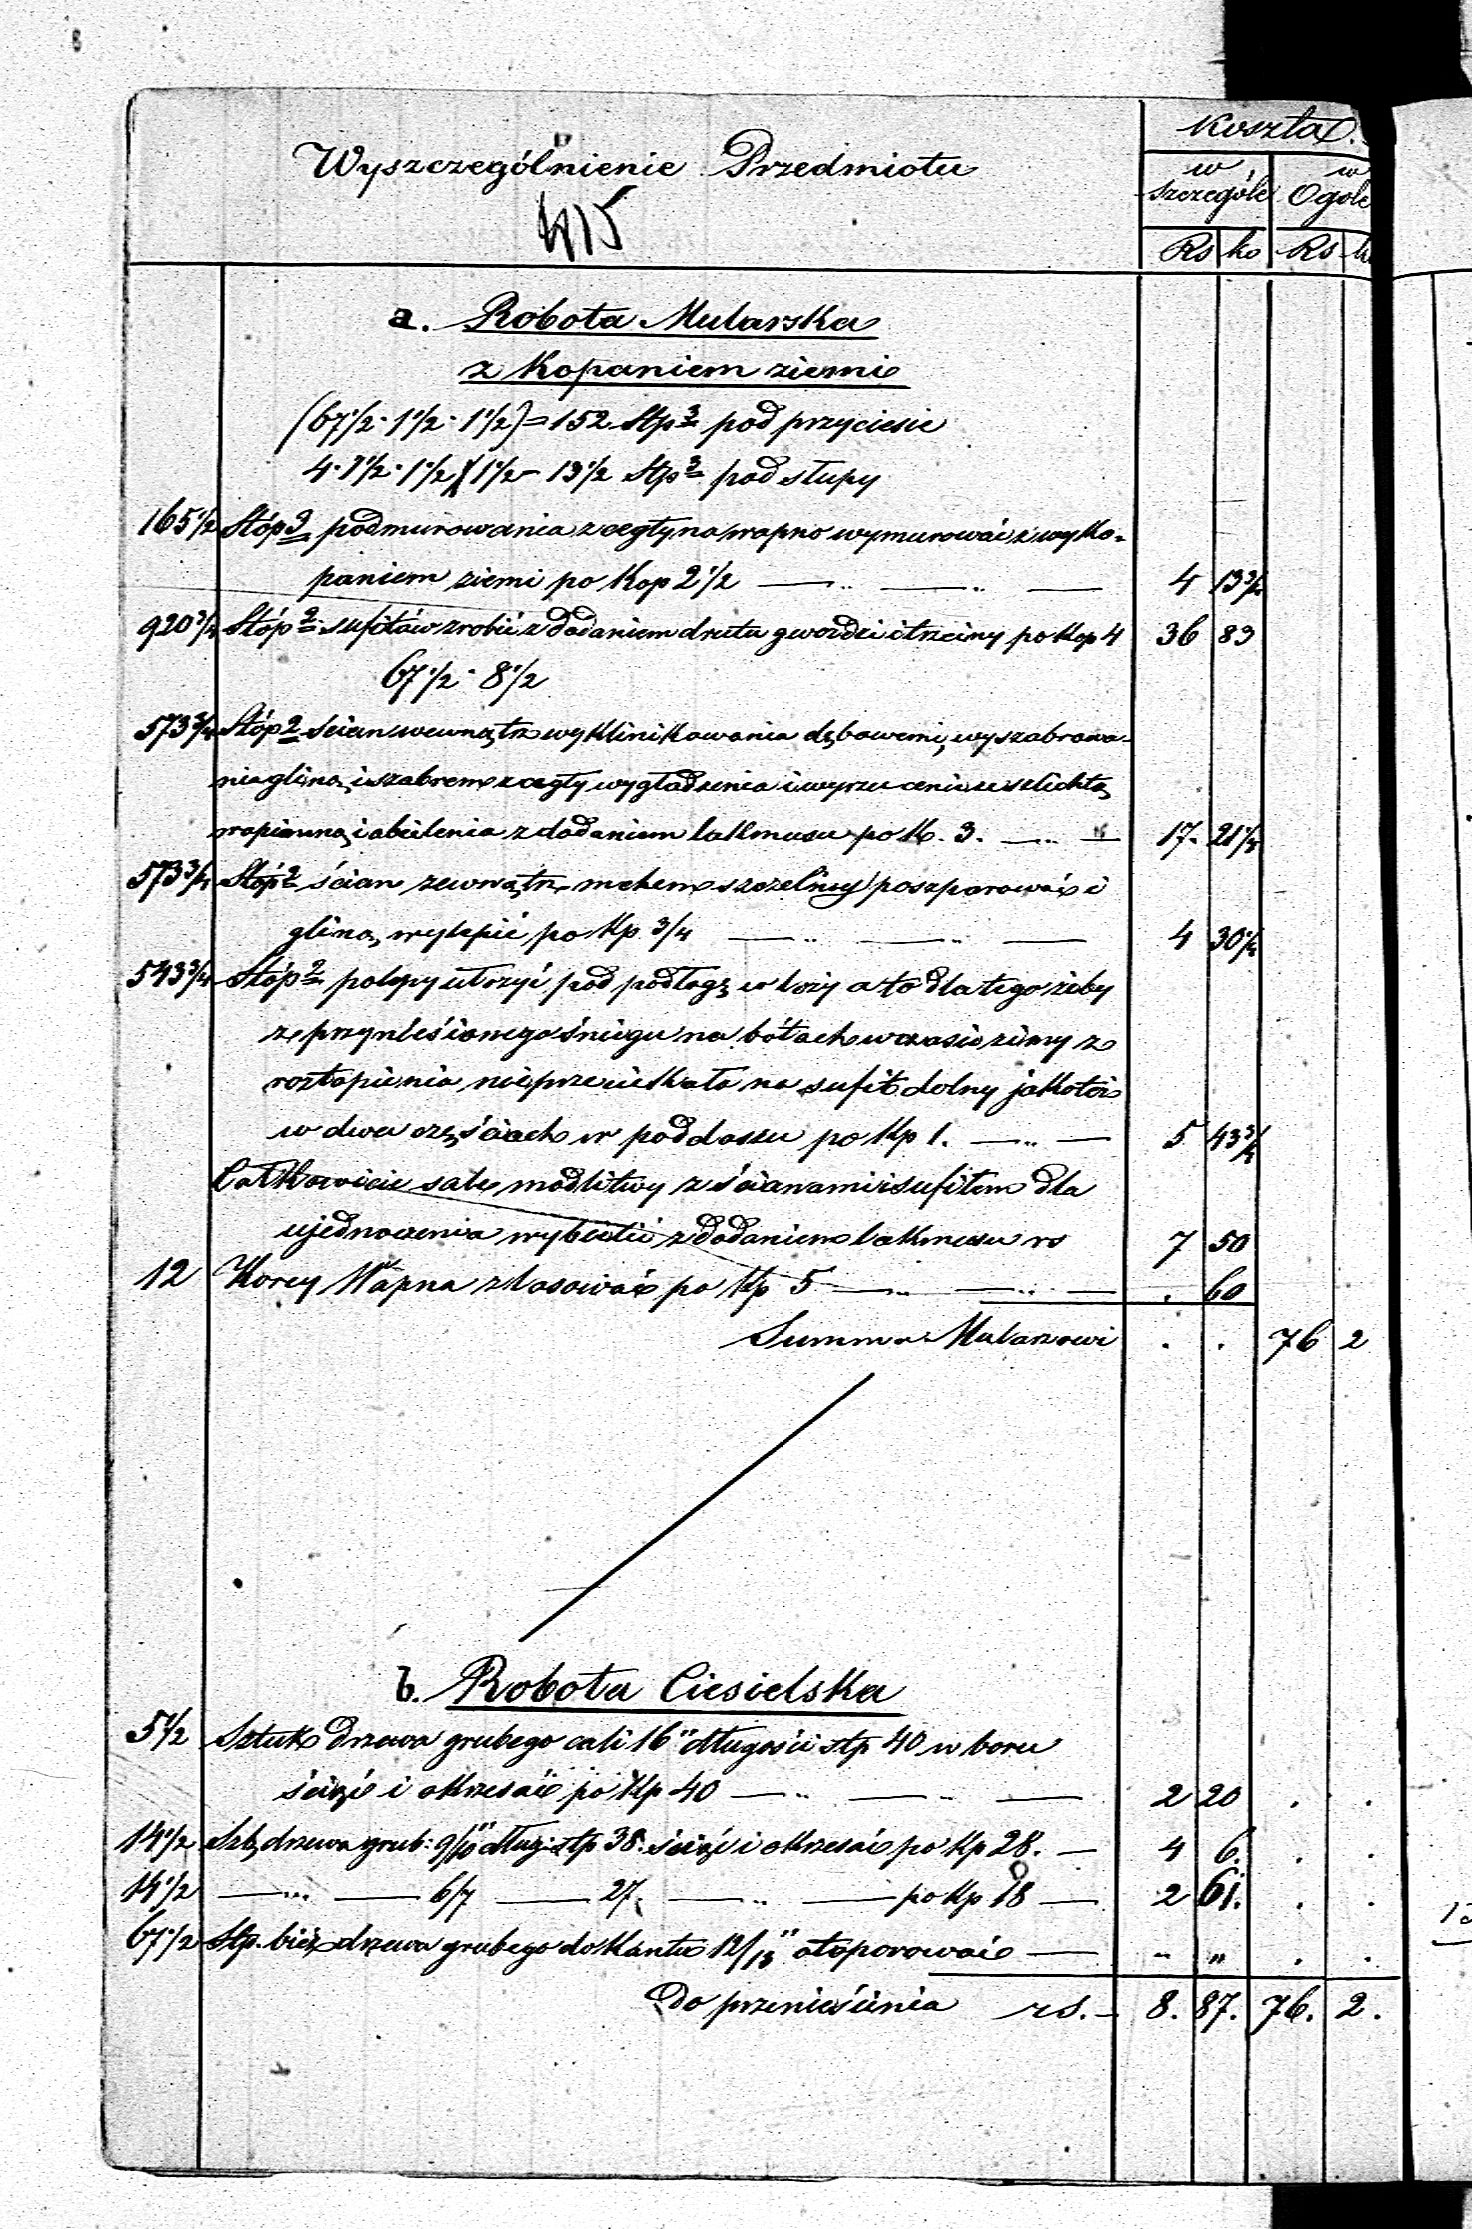 Koszta.
Wyszczególnienie Przedmiotu
w szczególe
w Ogole
415
Rs ko Rs
a. Robota Mularska
z Kopaniem ziemi
(67 1/2 · 1 1/2 · 1 1/2) = 152 Stp 3 pod przyciesie
1 1/2 = 13 1/2 Stp 3 pod słupy
165 1/2 Stóp 3 podmurowania z cegły na wapno wymurować z wyko-
paniem ziemi po Kop 2 1/2 4 13 3/4
920 3/4 Stóp 2 sufitów zrobić z dodaniem drutu gwoździ i trzciny po Kop 4 36 83
67 1/2 · 8 1/2
573 3/4 Stóp 2 scian wewnątrz wyklinikowania dębowemi, wyszabrowa-
nia gliną, i szabrem z cegły wygładzenia i wyrzucenia ze szlichtą
wapienną, i obielenia z dodaniem lakmusu po K. 3. 17. 21 1/4
573 3/4 Stóp 2 ścian zewnątrz mchem szczeliny poszparować i
gliną wylepić po Kp 3/4 4 30 1/4
543 3/4 Stóp 2 polepy ułożyć pod podłogę w loży a to dla tego żeby
z przynieśionego śniegu na bótach w czasie zimy z
roztopienia nieprzeciekało na sufit dolny jakoteż
w dwu częściach w poddaszu po Kp 1. 5 43 3/4
Całkowicie sale modlitwy z ścianami i sufitem dla
ujednoczenia wybielić z dodaniem lakmusu rs 7 50
12 Korcy Wapna zlasować po Kp 5 . 60
Summa Mularzowi . . 76 2
b. Robota Ciesielska
5 1/2 Sztuk drzewa grubego cali 16" długości stp 40 w boru
ściąć i okrzesać po Kp 40 2 20 . .
14 1/2 Szt. drzewa grub: 9/10" długi stp 38. ściąć i okrzesać po Kp 28. 4 6. . .
14 1/2 —..— 6/7 — 27. —..— po Kp 18 2 61. . .
67 1/2 Stp. bież drzewa grubego do kantu 12/13" otoporować " " . .
Do przeniesienia rs. 8. 87. 76. 2.